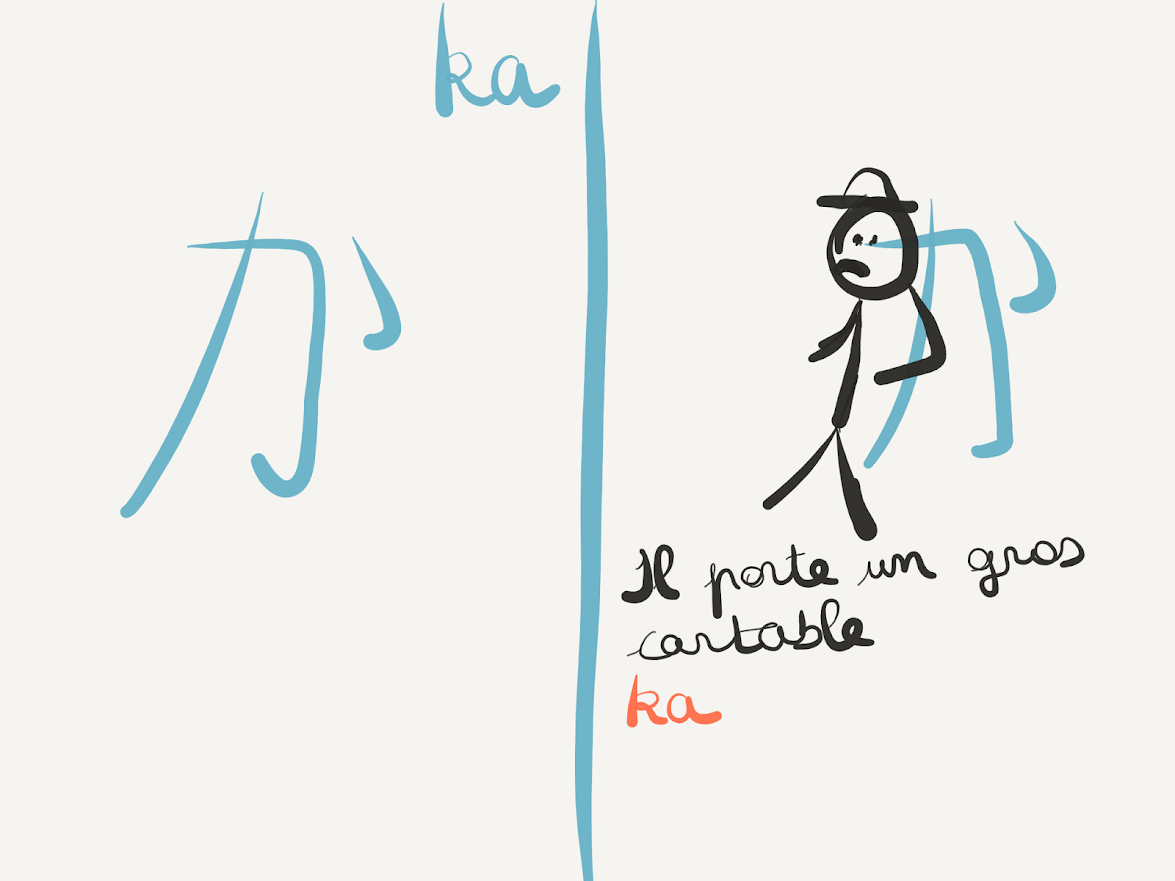 ka
か
か
Il porte un gros
cartable
ka